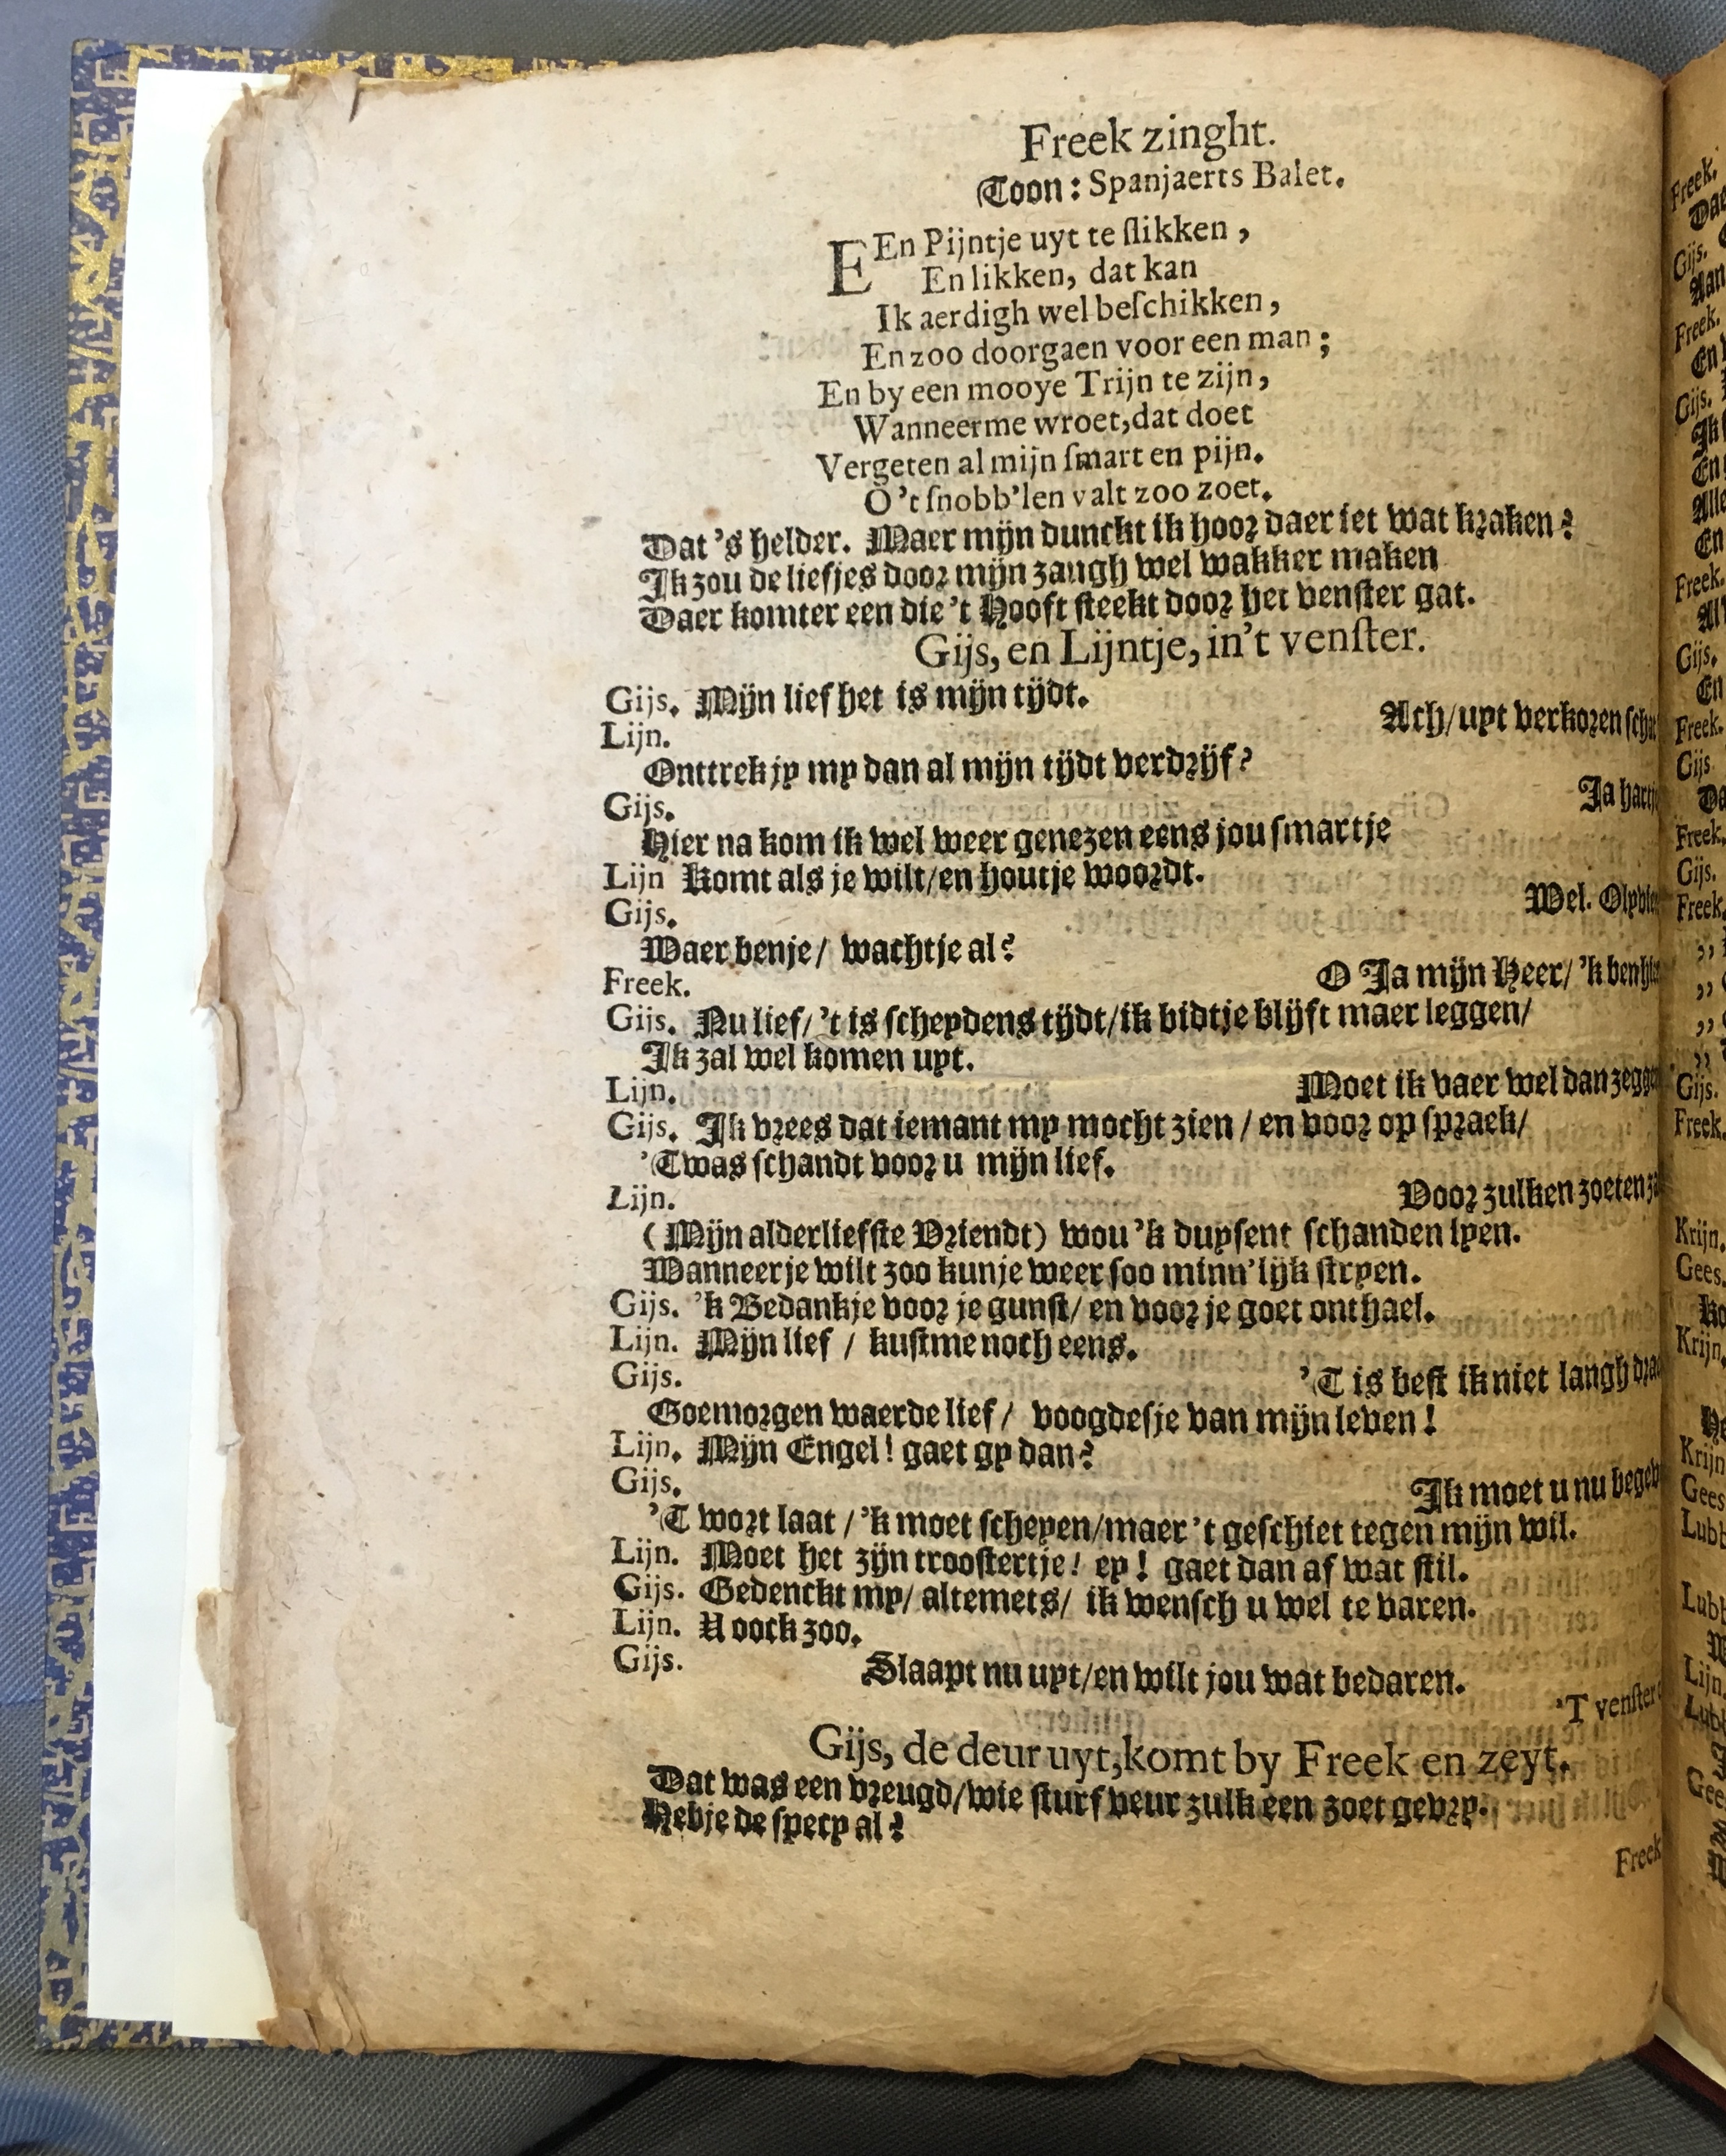 Freek zinght.
Toon: Spanjaerts Balet.
EEn Pijntje uyt te slikken,
En likken, dat kan
Ik aerdigh wel beschikken,
En zoo doorgaen voor een man;
En by een mooye Trijn te zijn,
Wanneerme wroet, dat doet
Vergeten al mijn smart en pijn.
O 't snobb'len valt zoo zoet.
Dat 's helder. Maer mijn dunckt ik hoor daer iet wat kraken?
Ik zou de liefjes door mijn zangh wel wakker maken
Daer komter een die 't Hooft steekt door het venster gat.
Gijs, en Lijntje, in't venster.
Gijs. Mijn lief het is mijn tijdt.
Lijn. Ach/uyt verkozen
Onttrek jy my dan al mijn tijdt verdrijf?
Gijs. Ja
Hier na kom ik wel weer genezen eens jou smartje
Lijn Komt als je wilt/en houtje woordt.
Gijs. Wel.
Waer benje/ wachtje al?
Freek. O Ja mijn Heer/ 'k ben
Gijs. Nu lief/'t is scheydens tijdt/ik bidtje blijft maer leggen/
Ik zal wel komen uyt.
Lijn. Moet ik vaer wel dan
Gijs. Ik vrees dat iemant my mocht zien / en voor op spraek/
'Twas schandt voor u mijn lief.
Lijn. Voor zulken zoeten
(Mijn alderliefste Vriendt) wou 'k duysent schanden lyen.
Wanneerje wilt zoo kunje weer soo minn'lijk stryen.
Gijs. 'k Bedankje voor je gunst/ en voor je goet onthael.
Lijn. Mijn lief / kustme noch eens.
Gijs. 'T is best ik niet langh
Goemorgen waerde lief/ voogdesje van mijn leven!
Lijn. Mijn Engel! gaet gy dan?
Gijs. Ik moet u nu
'T wort laat /'k moet scheyen/maer 't geschiet tegen mijn wil.
Lijn. Moet het zijn troostertje! ey! gaet dan af wat stil.
Gijs. Gedenckt my/ altemets/ ik wensch u wel te varen.
Lijn. U oock zoo.
Gijs. Slaapt nu uyt/en wilt jou wat bedaren.
'T venster
Gijs, de deur uyt, komt by Freek en zeyt.
Dat was een vreugd/wie sturf veur zulk een zoet gevry.
Hebje de specy al?
Freek